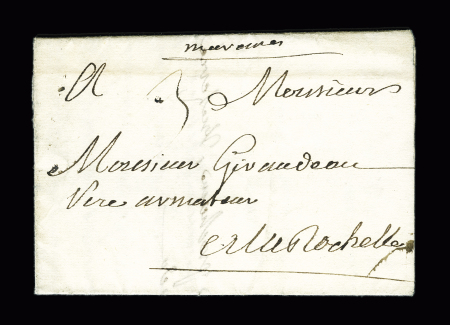 marennes
A 3 Monsieur
Monsieur Giraudeau
Pere armateur
A La Rochelle